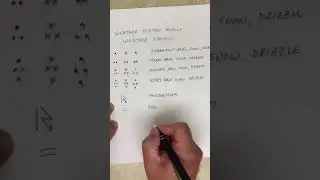 WEATHER STATION MODELS
WEATHER SYMBOLS
INTERMITTENT RAIN, SNOW, DRIZZLE
STEADY RAIN, SNOW, DRIZZLE
RAIN, SNOW, DRIZZLE
HEAVY RAIN, SNOW, DRIZZLE
THUNDERSTORM
FOG